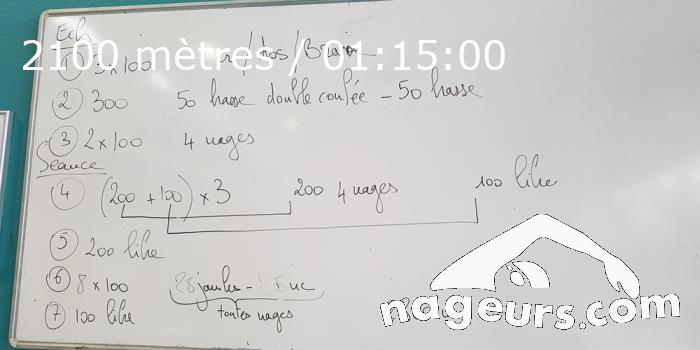 Ech
2100 mètres / 01:15:00
① 3 x 100
② 300 50 brasse double coulée - 50 brasse
③ 2 x 100 4 nages
Séance
④ (200 + 100) x 3 200 4 nages 100 libre
⑤ 200 libre
⑥ 8 x 100 25 jambes - 25 NC
toutes nages
⑦ 100 libre
nageurs.com